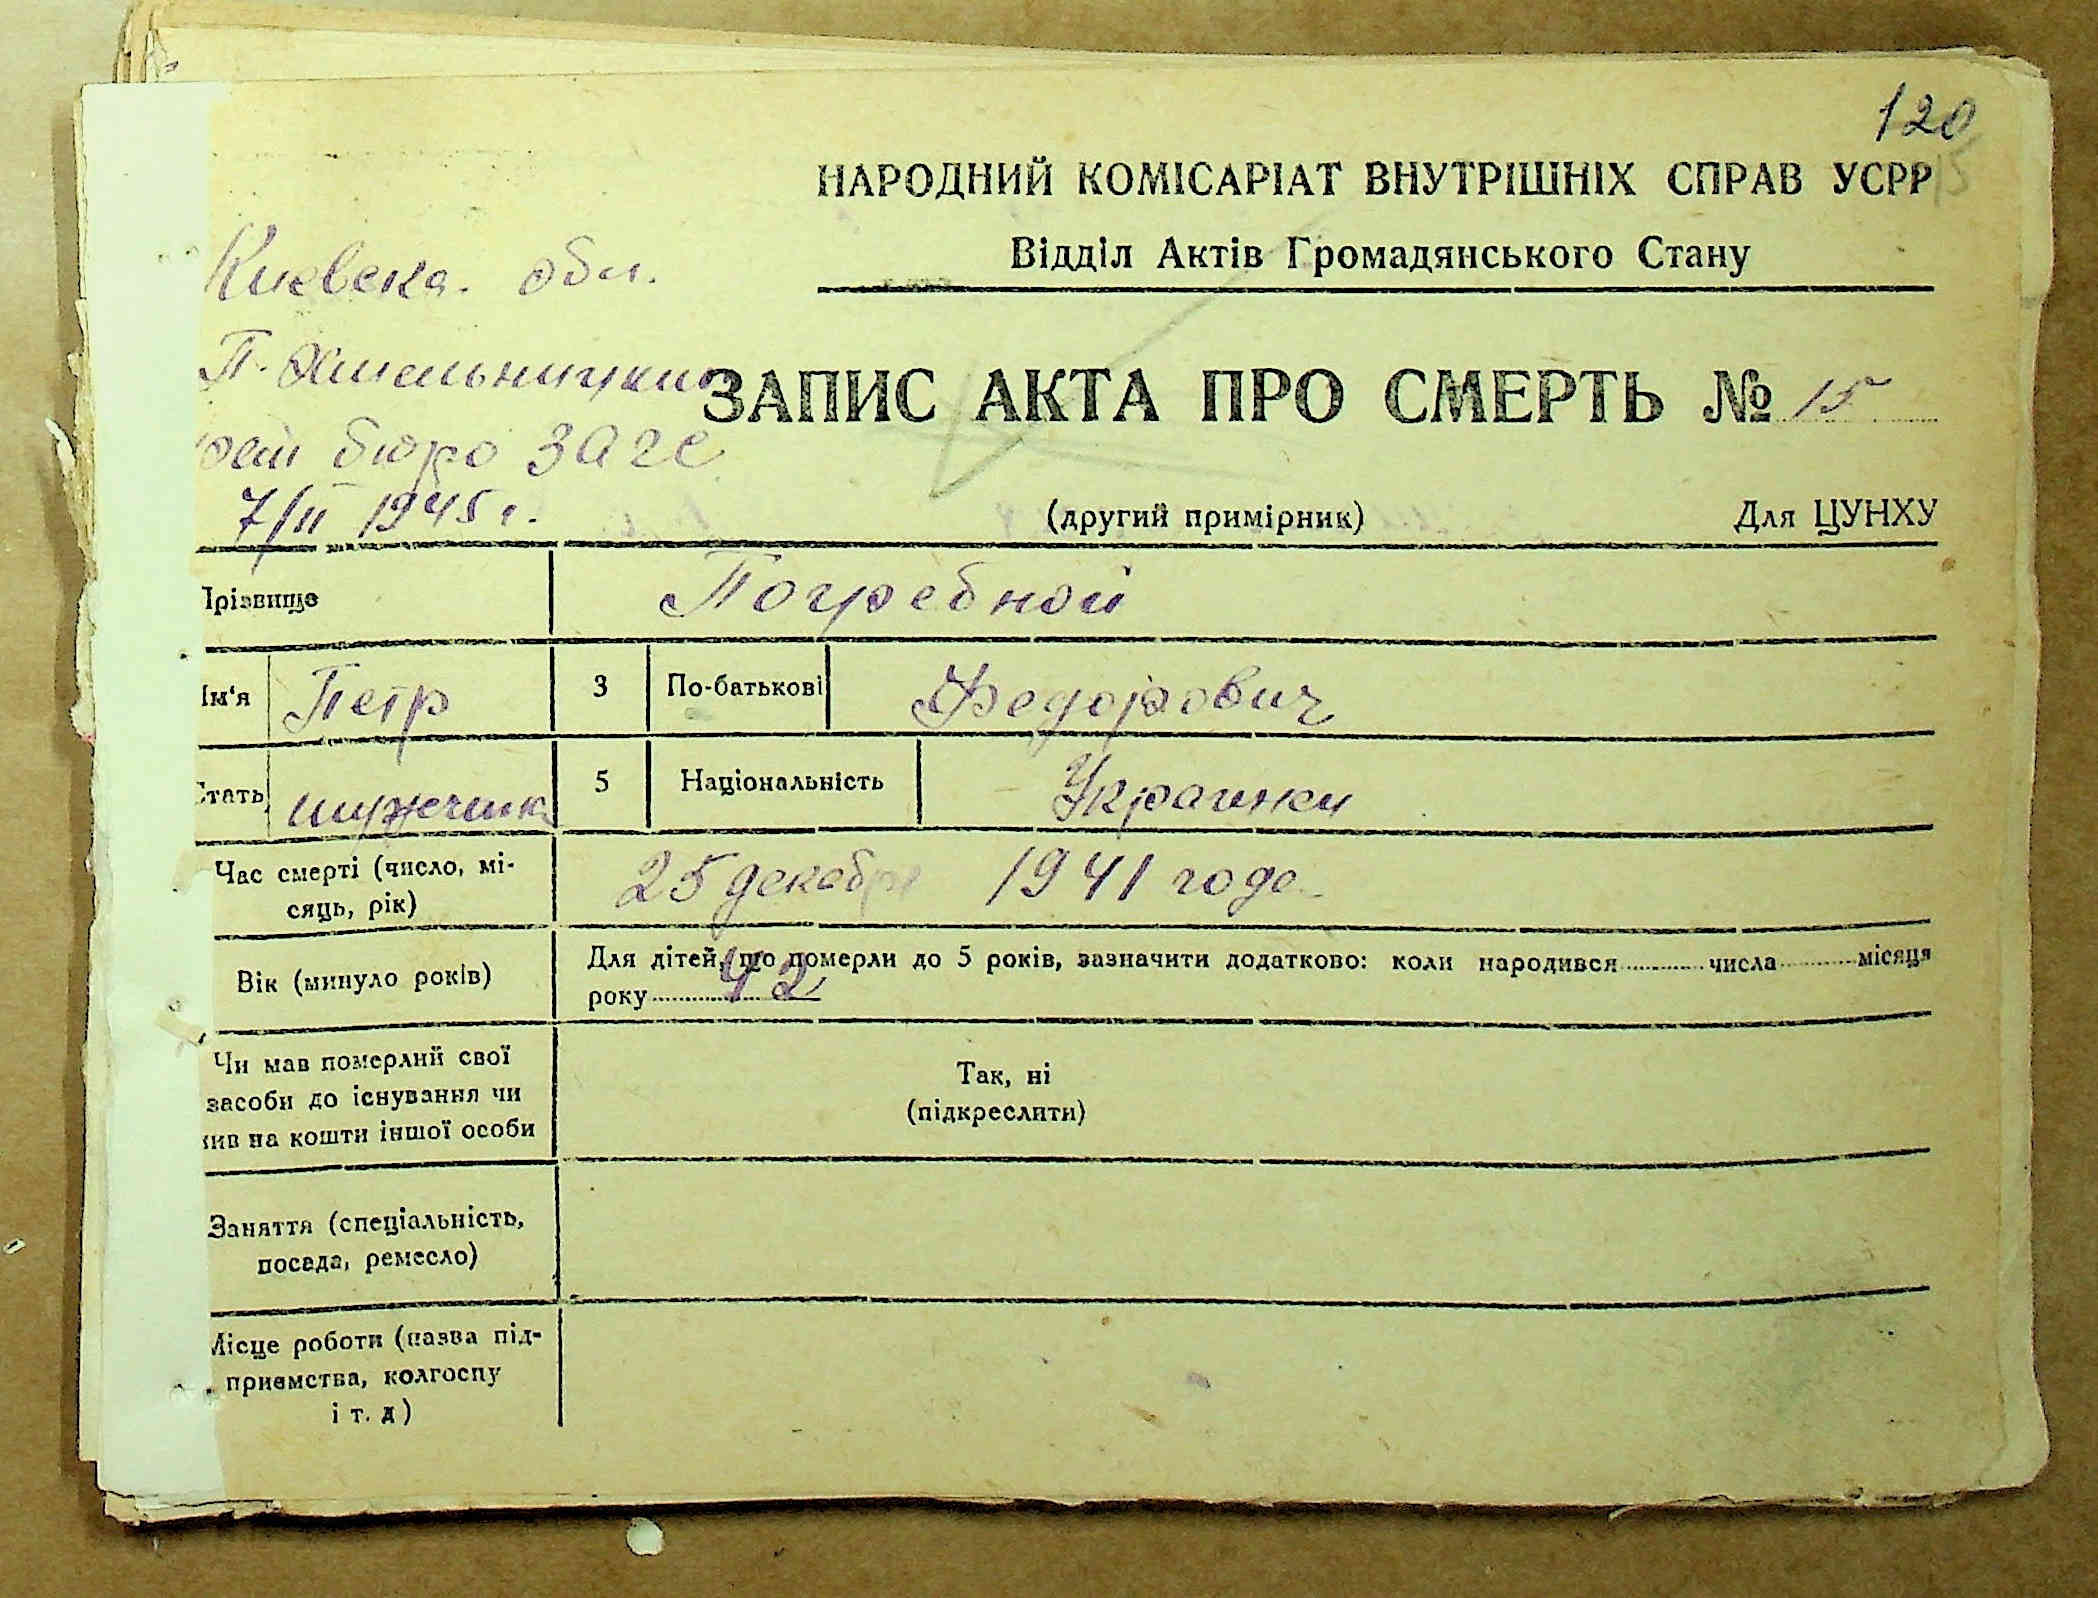 120
15
НАРОДНИЙ КОМІСАРІАТ ВНУТРІШНІХ СПРАВ УСРР
Відділ Актів Громадянського Стану
Киевска. обл.
П-Хмельницкий
рай бюро загс
7/II 1945 г.
ЗАПИС АКТА ПРО СМЕРТЬ № 15
(другий примірник) Для ЦУНХУ
Прізвище Погребной
Ім'я Петр 3 По-батькові Федорович
Стать 5 Національність
Час смерті (число, мі-
сяць, рік) 25 декабря 1941 года
Вік (минуло років) 42
Для дітей, що померли до 5 років, зазначити додатково: коли народився числа місяця
року
Чи мав померлий свої
засоби до існування чи
жив на кошти іншої особи
Так, ні
(підкреслити)
Заняття (спеціальність,
посада, ремесло)
Місце роботи (назва під-
приємства, колгоспу
і т. д)